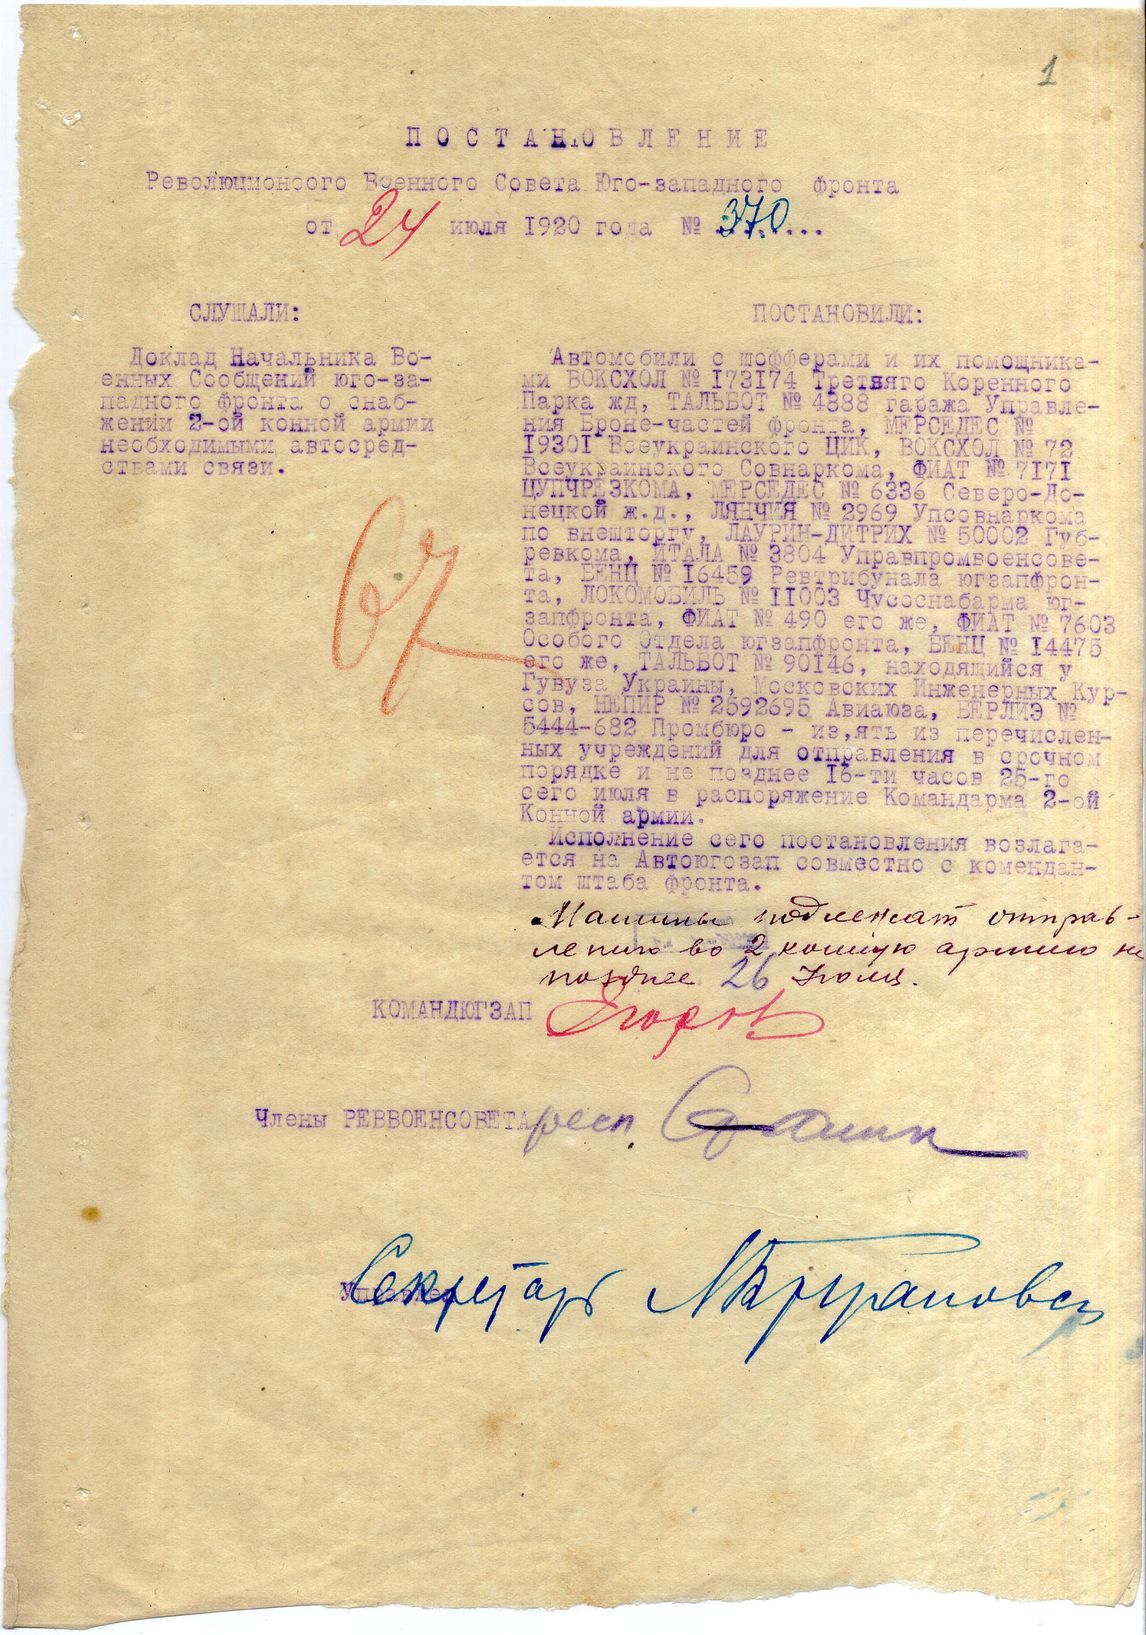 1
ПОСТАНОВЛЕНИЕ
Революционсого Военного Совета Юго-западного фронта
от 24 июля 1920 года № 370...
СЛУШАЛИ:
Доклад Начальника Во-
енных Сообщений юго-за-
падного фронта о снаб-
жении 2-ой конной армии
необходимыми автосред-
ствами связи.
67
ПОСТАНОВИЛИ:
Автомобили с шофферами и их помощника-
ми ВОКСХОЛ № 173174 Третяго Коренного
Парка жд, ТАЛЬБОТ № 4888 гаража Управле-
ния Броне-частей фронта, МЕРСЕДЕС №
19301 Всеукраинского ЦИК, ВОКСХОЛ № 72
Всеукраинского Совнаркома, ФИАТ № 7171
ЦУПЧРЕЗКОМА, МЕРСЕДЕС № 6336 Северо-До-
нецкой ж.д., ЛЯНЧИЯ № 2969 Упсовнаркома
по внешторгу, ЛАУРИН-ДИТРИХ № 50002 Губ-
ревкома, ИТАЛА № 3804 Управпромвоенсове-
та, БЕНЦ № 16459 Ревтрибунала югзапфрон-
та, ЛОКОМОБИЛЬ № 11003 Чусоснабарма юг-
запфронта, ФИАТ № 490 его же, ФИАТ № 7603
Особого Отдела югзапфронта, БЕНЦ № 14475
его же, ТАЛЬБОТ № 90146, находящийся у
Гувуза Украины, Московских Инженерных Кур-
сов, НЕПИР № 2592695 Авиаюза, БЕРЛИЭ №
5444-682 Промбюро - из,ять из перечислен-
ных учреждений для отправления в срочном
порядке и не позднее 16-ти часов 25-го
сего июля в распоряжение Командарма 2-ой
Конной армии.
Исполнение сего постановления возлага-
ется на Автоюгозап совместно с комендан-
том штаба фронта.
Машины подлежат отправ-
лению во 2 конную армию не
позднее 26 Июля.
КОМАНДЮГЗАП Егоров
Члены РЕВВОЕНСОВЕТА респ. Сталин
Секретарь